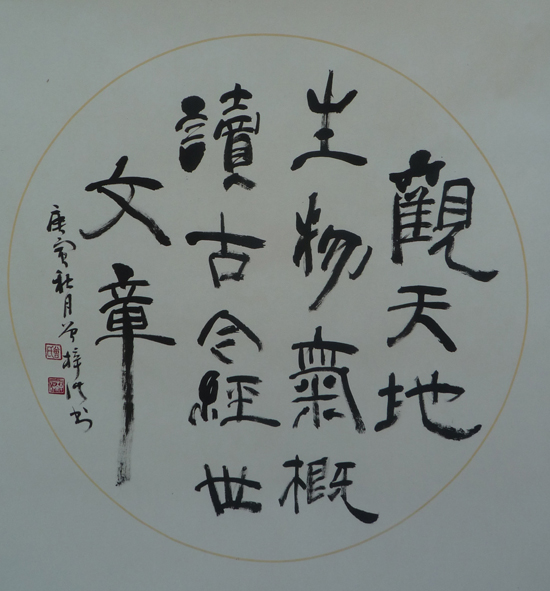 觀天地
生物氣概
讀古今經世
文章
庚寅秋月曾梓洪书